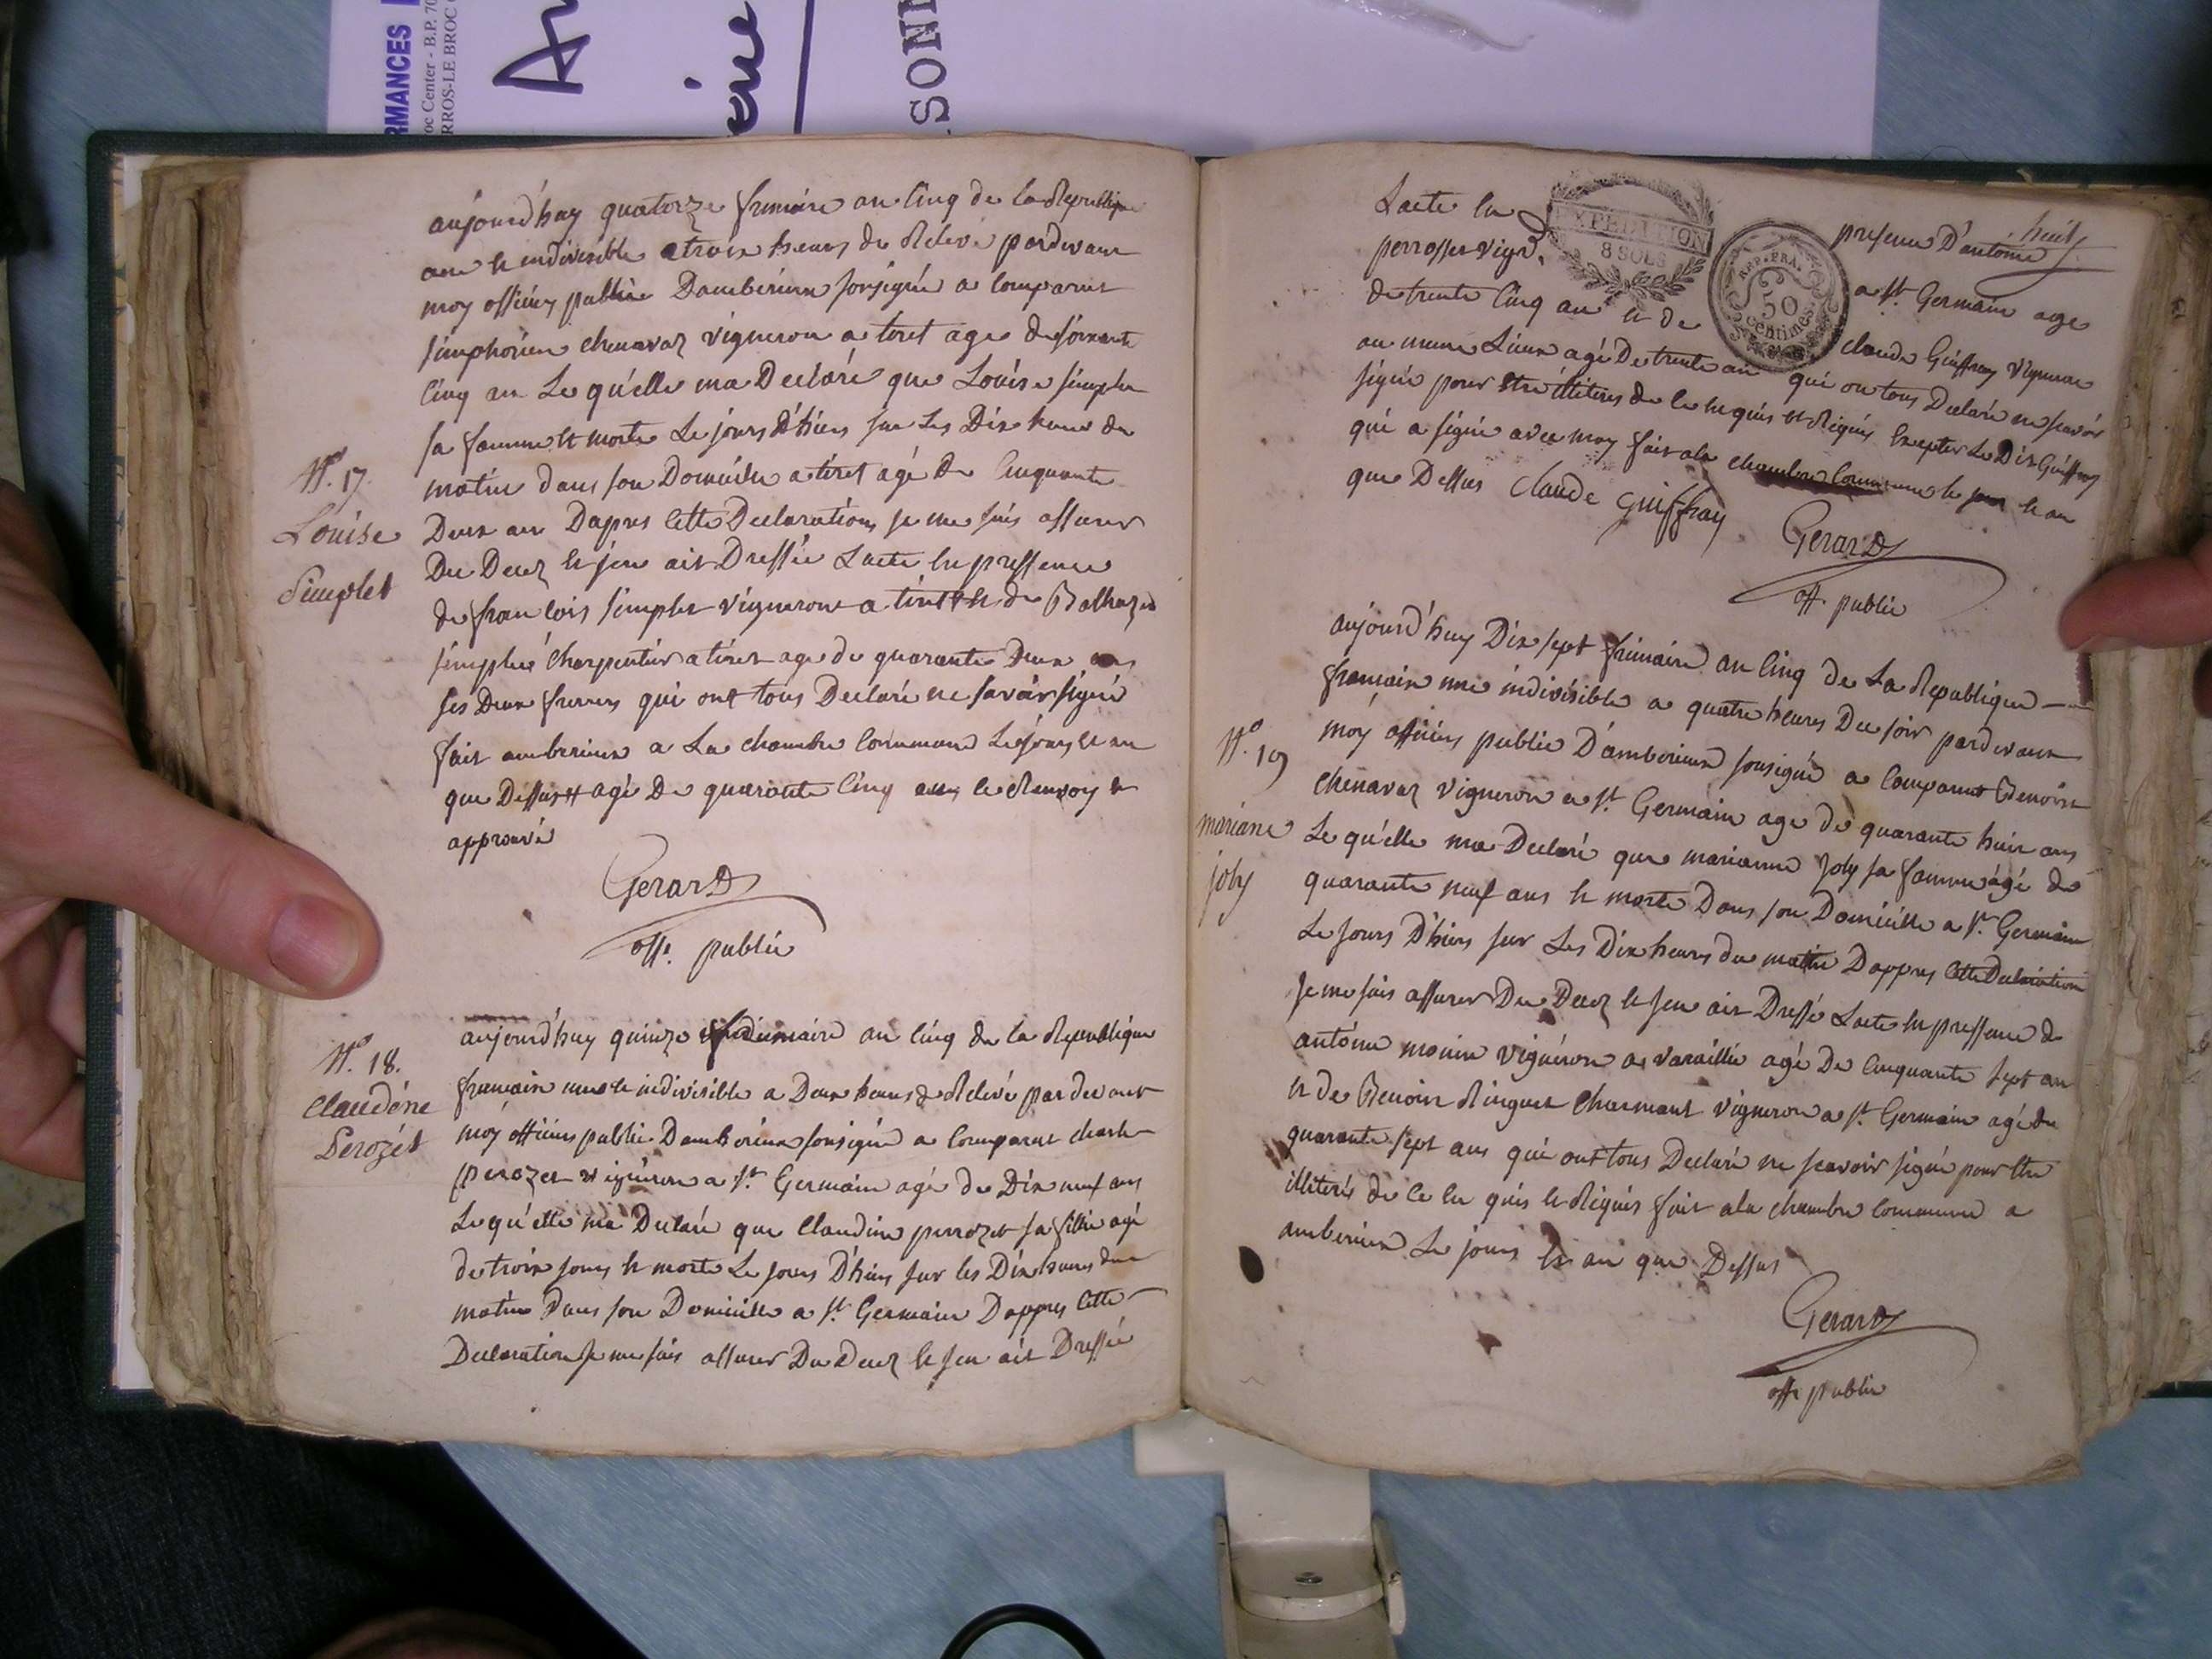 RMANCES
oc Center - B.P. 70
RROS-LE BROC
SONN
aujourd'huy quatorze frimaire an cinq de la Republique
une et indivisible a trois heures de Relevé pardevant
moy officiers public Damberieux sousigné a comparut
simphorien chenavaz vigneron a tiret age de soixante
cinq an Le qu'elle ma Declaré que Louise simplet
sa famme et morte Le jours d'hiers sur Les Dix heures du
matin dans son Domicille a tiret agé de Cinquante
Deux an Dapres cette Declarations je me suis assurer
Du Decez et jen ait Dressée Lacte en pressence
de francois simplet vigneront a tiret # et de Balthazard
simplet charpentier a tiret age de quarante Deux ans
ses Deux freres qui ont tous Declaré ne savoir signé
fait amberieux a La chambre Commune Le jours et an
que Dessus # agé De quarante cinq ans le Renvoy et
approuvé
Gerard
off. public
N.º 17.
Louise
Simplet
aujourd'huy quinze frimaire an cinq de la Republique
francaise une et indivisible a Deux heures de Relevé pardevant
moy officiers public Damberieux sousigné a comparut charle
perozet vigneron a St. Germain agé de Dix neuf ans
Le qu'elle ma Declaré que Claudine perrozet sa fillie agé
de trois jours et morte Le jours D'hiers sur les Dix heures du
matin Dans son Domicille a St. Germain Dappres cette
Declaration Je me suis assurer Du Decez et jen ait Dressée
N.º 18.
Claudéne
Perozét
huit
Lacte en presence D'antoine
perrosset vign. a St. Germain age
de trente cinq an et de claude Guiffray vigneron
au meme Lieux agé De trente an qui on tous Declaré ne scavoir
signé pour etre illiteres de ce enquis et Requis Excepter Le Dit Guiffray
qui a signé avec moy fait ala chambre Commune le jour et an
que Dessus Claude Guiffray
Gerard
off. public
aujourd'huy Dix sept frimaire an cinq de La Republique
francaise une indivisible a quatre heures Du soir pardevant
moy officiers public D'amberieux sousigné a comparut Benoist
chenavaz vigneron a St. Germain age de quarante huit ans
Le qu'elle ma Declaré que marianne Joly sa famme agé de
quarante neuf ans et morte Dans son Domicille a St. Germain
Le jours D'hiers sur Les Dix heures du matin Dappres cette Declaration
Je me suis assurer Du Decez et jen ait Dressé Lacte en pressence de
antoine monin vigneron a vareillie agé De cinquante sept an
et de Benoist Ringuet Charmant vigneron a St. Germain agé de
quarante sept ans qui ont tous Declaré ne scavoir signé pour etre
illiterés de ce en quis et Requis fait ala chambre Commune a
amberieux Le jours et an que Dessus
Gerard
off. public
N.º 19
mariane
joly
EXPEDITION
8 SOLS
REP. FRA.
50
centimes